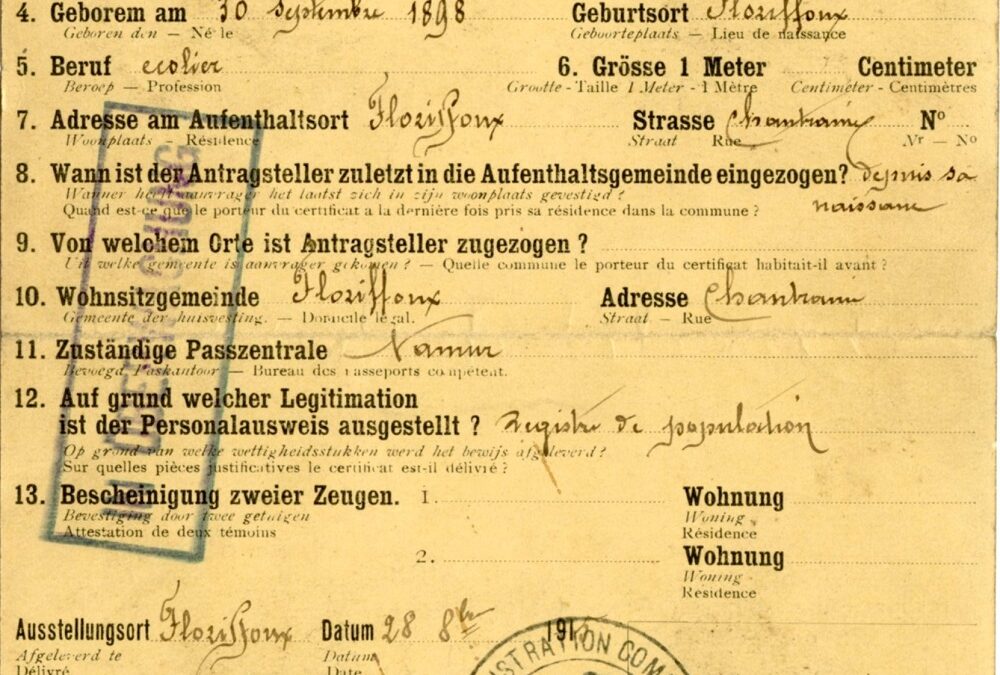 4. Geborem am 30 Septembre 1898 Geburtsort Floriffoux
Geboren den — Né le Geboorteplaats — Lieu de naissance
5. Beruf ecolier 6. Grösse 1 Meter Centimeter
Beroep — Profession Grootte - Taille 1 Meter - 1 Mètre Centimeter - Centimètres
7. Adresse am Aufenthaltsort Floriffoux Strasse Chantraine No
Woonplaats — Résidence Straat Rue Nr — No
8. Wann ist der Antragsteller zuletzt in die Aufenthaltsgemeinde eingezogen? depuis sa
Wanner heeft aanvrager het laatst zich in zijn woonplaats gevestigd?
Quand est-ce que le porteur du certificat a la dernière fois pris sa résidence dans la commune ? naissance
9. Von welchem Orte ist Antragsteller zugezogen ?
Uit welke gemeente is aanvrager gekomen? — Quelle commune le porteur du certificat habitait-il avant ?
10. Wohnsitzgemeinde Floriffoux Adresse Chantraine
Gemeente der huisvesting. — Domicile légal. Straat — Rue
11. Zuständige Passzentrale Namur
Bevoegd Paskantoor — Bureau des Passeports compétent.
12. Auf grund welcher Legitimation
ist der Personalausweis ausgestellt ? Registre de population
Op grond van welke wettigheidsstukken werd het bewijs afgeleverd?
Sur quelles pièces justificatives le certificat est-il délivré ?
13. Bescheinigung zweier Zeugen. 1. Wohnung
Bevestiging door twee getuigen Woning
Attestation de deux témoins Résidence
2. Wohnung
Woning
Résidence
Ausstellungsort Floriffoux Datum 28 8bre 1915
Afgeleverd te Datum
Délivré Date